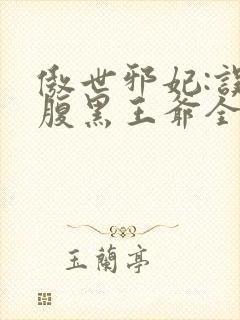 傲世邪妃:誤
腹黑王爺全
玉蘭亭